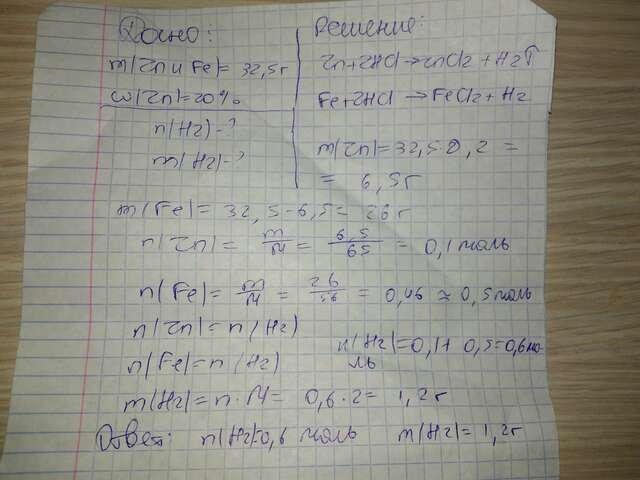 Дано:
m(Zn и Fe)= 32,5г
ω(Zn)=20%
n(H2)-?
m(H2)-?
Решение:
Zn+2HCl→ZnCl2+H2↑
Fe+2HCl→FeCl2+H2
m(Zn)=32,5·0,2=
= 6,5г
m(Fe)= 32,5-6,5= 26г
n(Zn)= m/M = 6,5/65 = 0,1 моль
n(Fe)= m/M = 26/56 = 0,46 ≈ 0,5моль
n(Zn)= n(H2)
n(Fe)= n(H2)
n(H2)=0,1+0,5=0,6мо-
ль
m(H2)= n·M= 0,6·2= 1,2г
Ответ: n(H2)=0,6 моль m(H2)= 1,2г